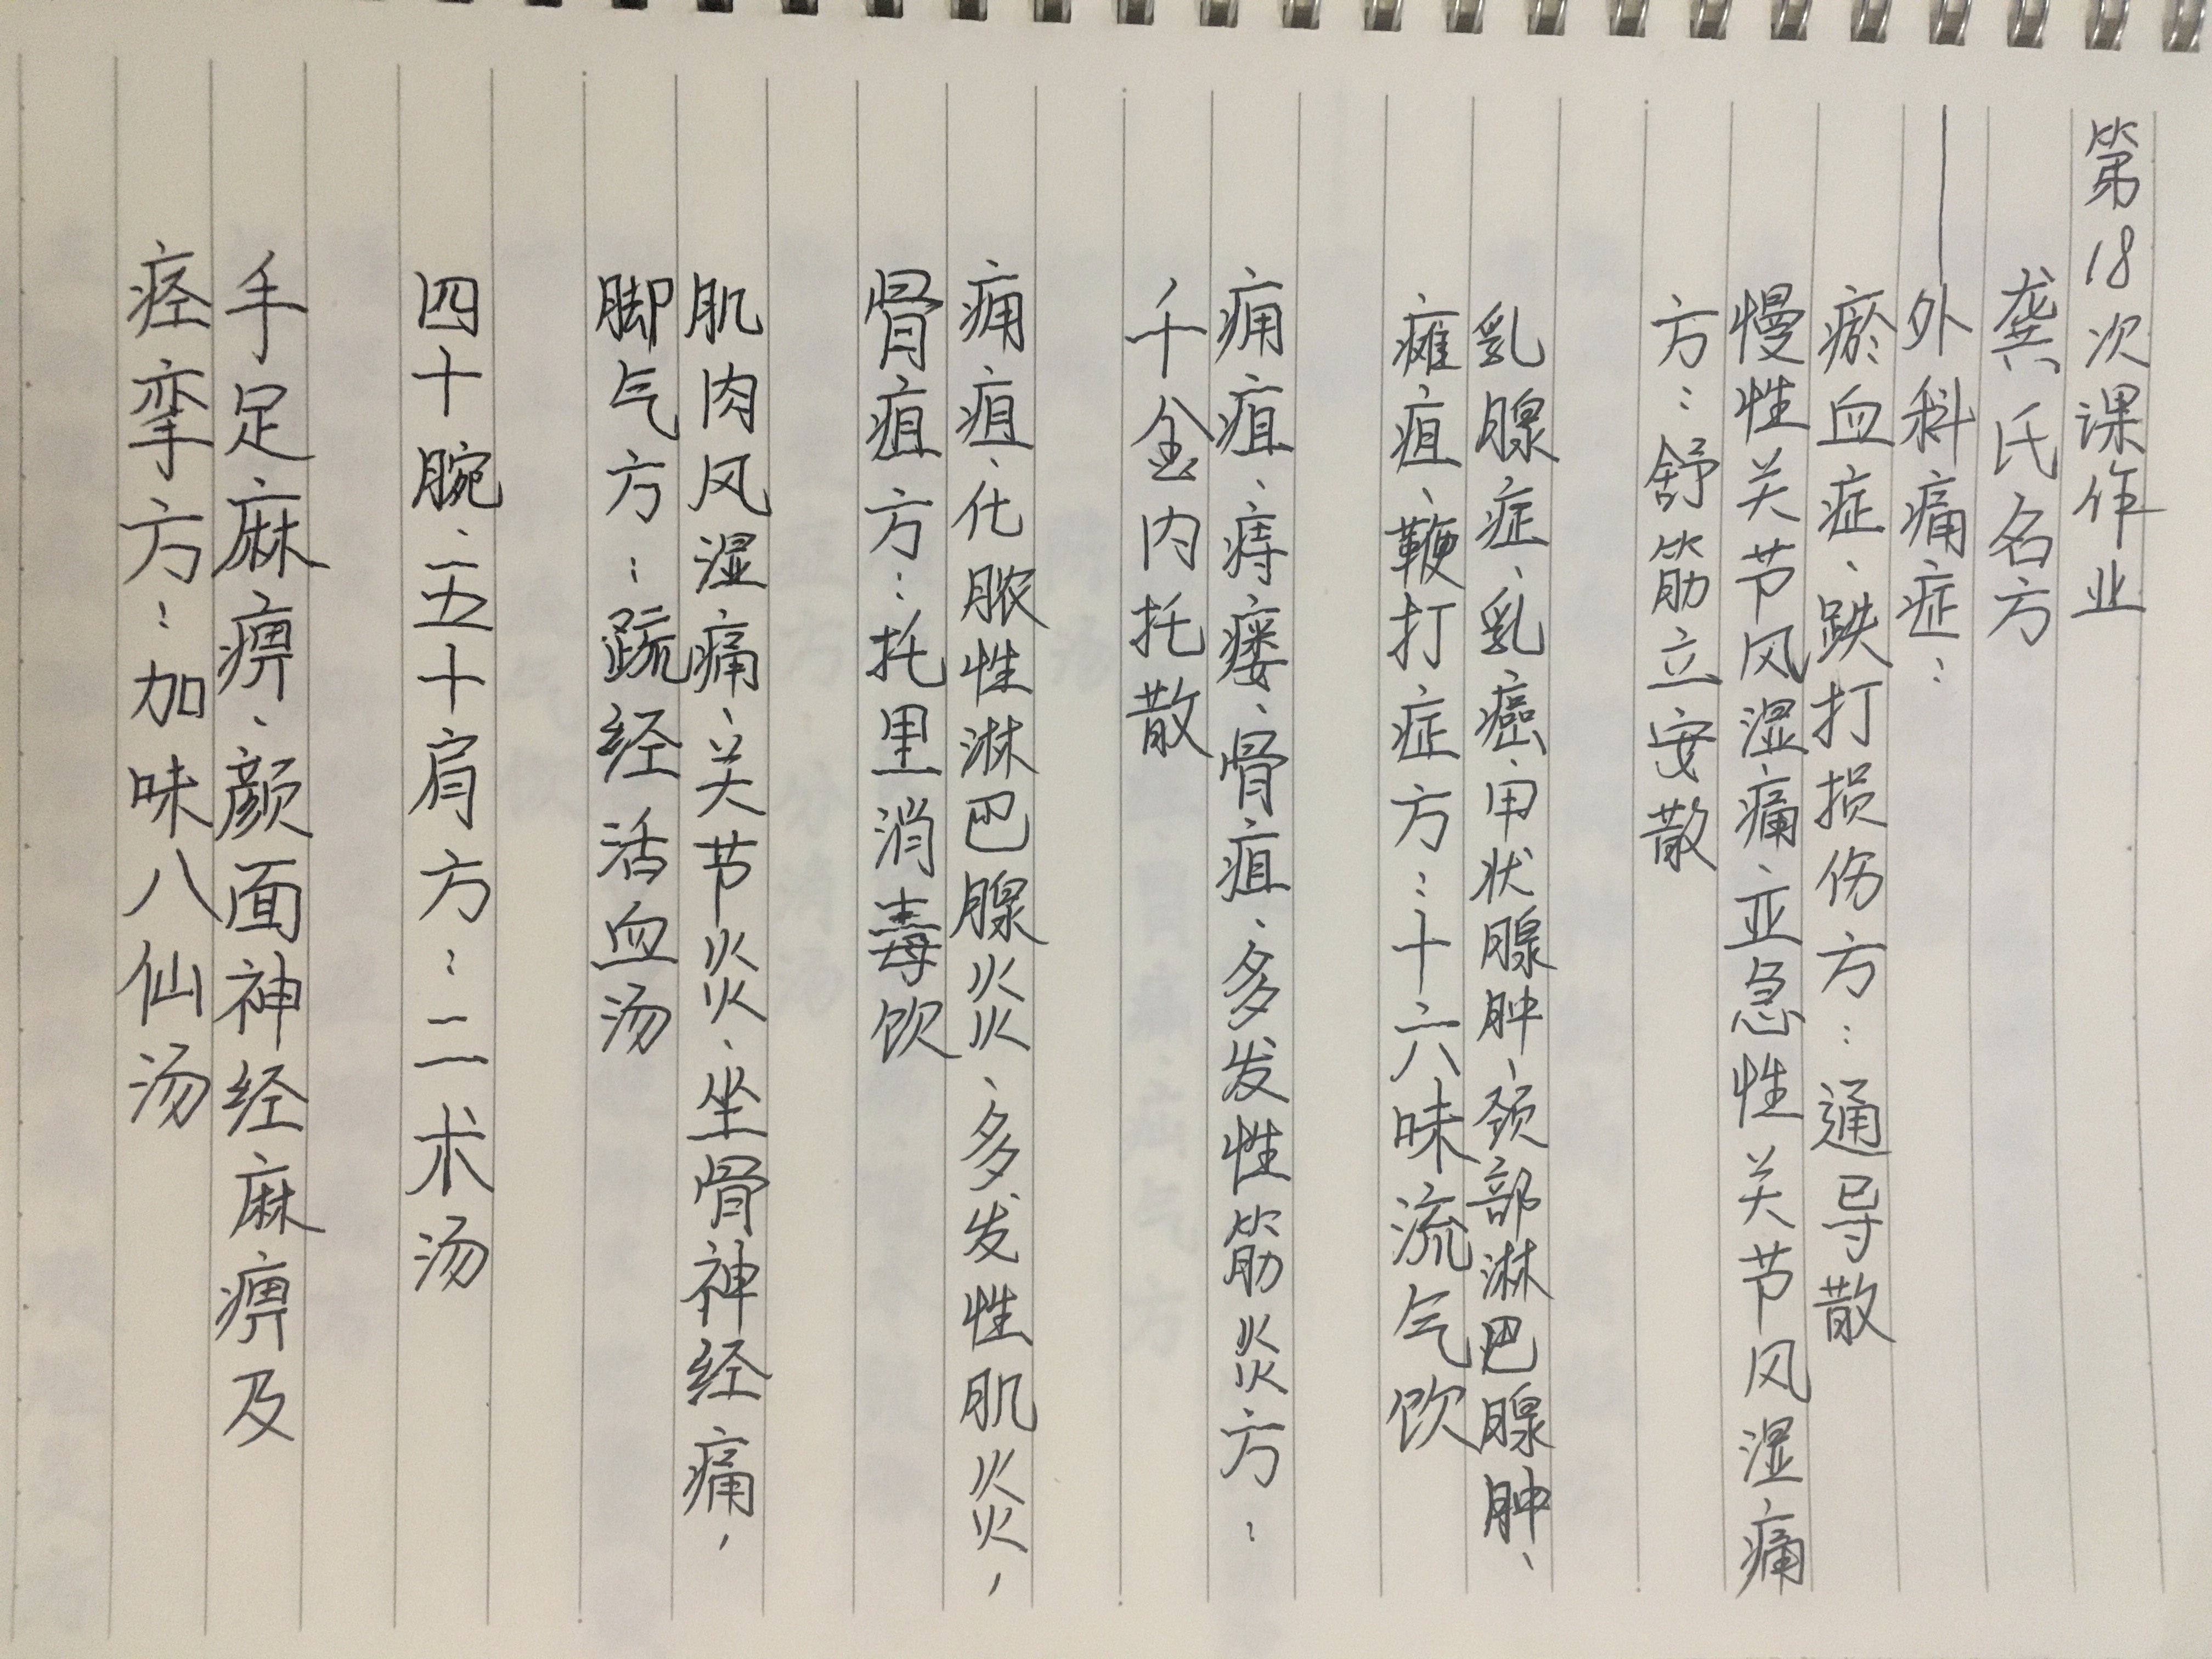 第18次课作业
龚氏名方
——外科痛症：
瘀血症、跌打损伤方：通导散
慢性关节风湿痛、亚急性关节风湿痛
方：舒筋立安散
乳腺症、乳癌、甲状腺肿、颈部淋巴腺肿、
瘫疽、鞭打症方：十六味流气饮
痈疽、痔瘘、骨疽、多发性筋炎方：
千金内托散
痈疽、化脓性淋巴腺炎、多发性肌炎，
骨疽方：托里消毒饮
肌肉风湿痛、关节炎、坐骨神经痛，
脚气方：疏经活血汤
四十腕、五十肩方：二术汤
手足麻痹、颜面神经麻痹及
痉挛方：加味八仙汤